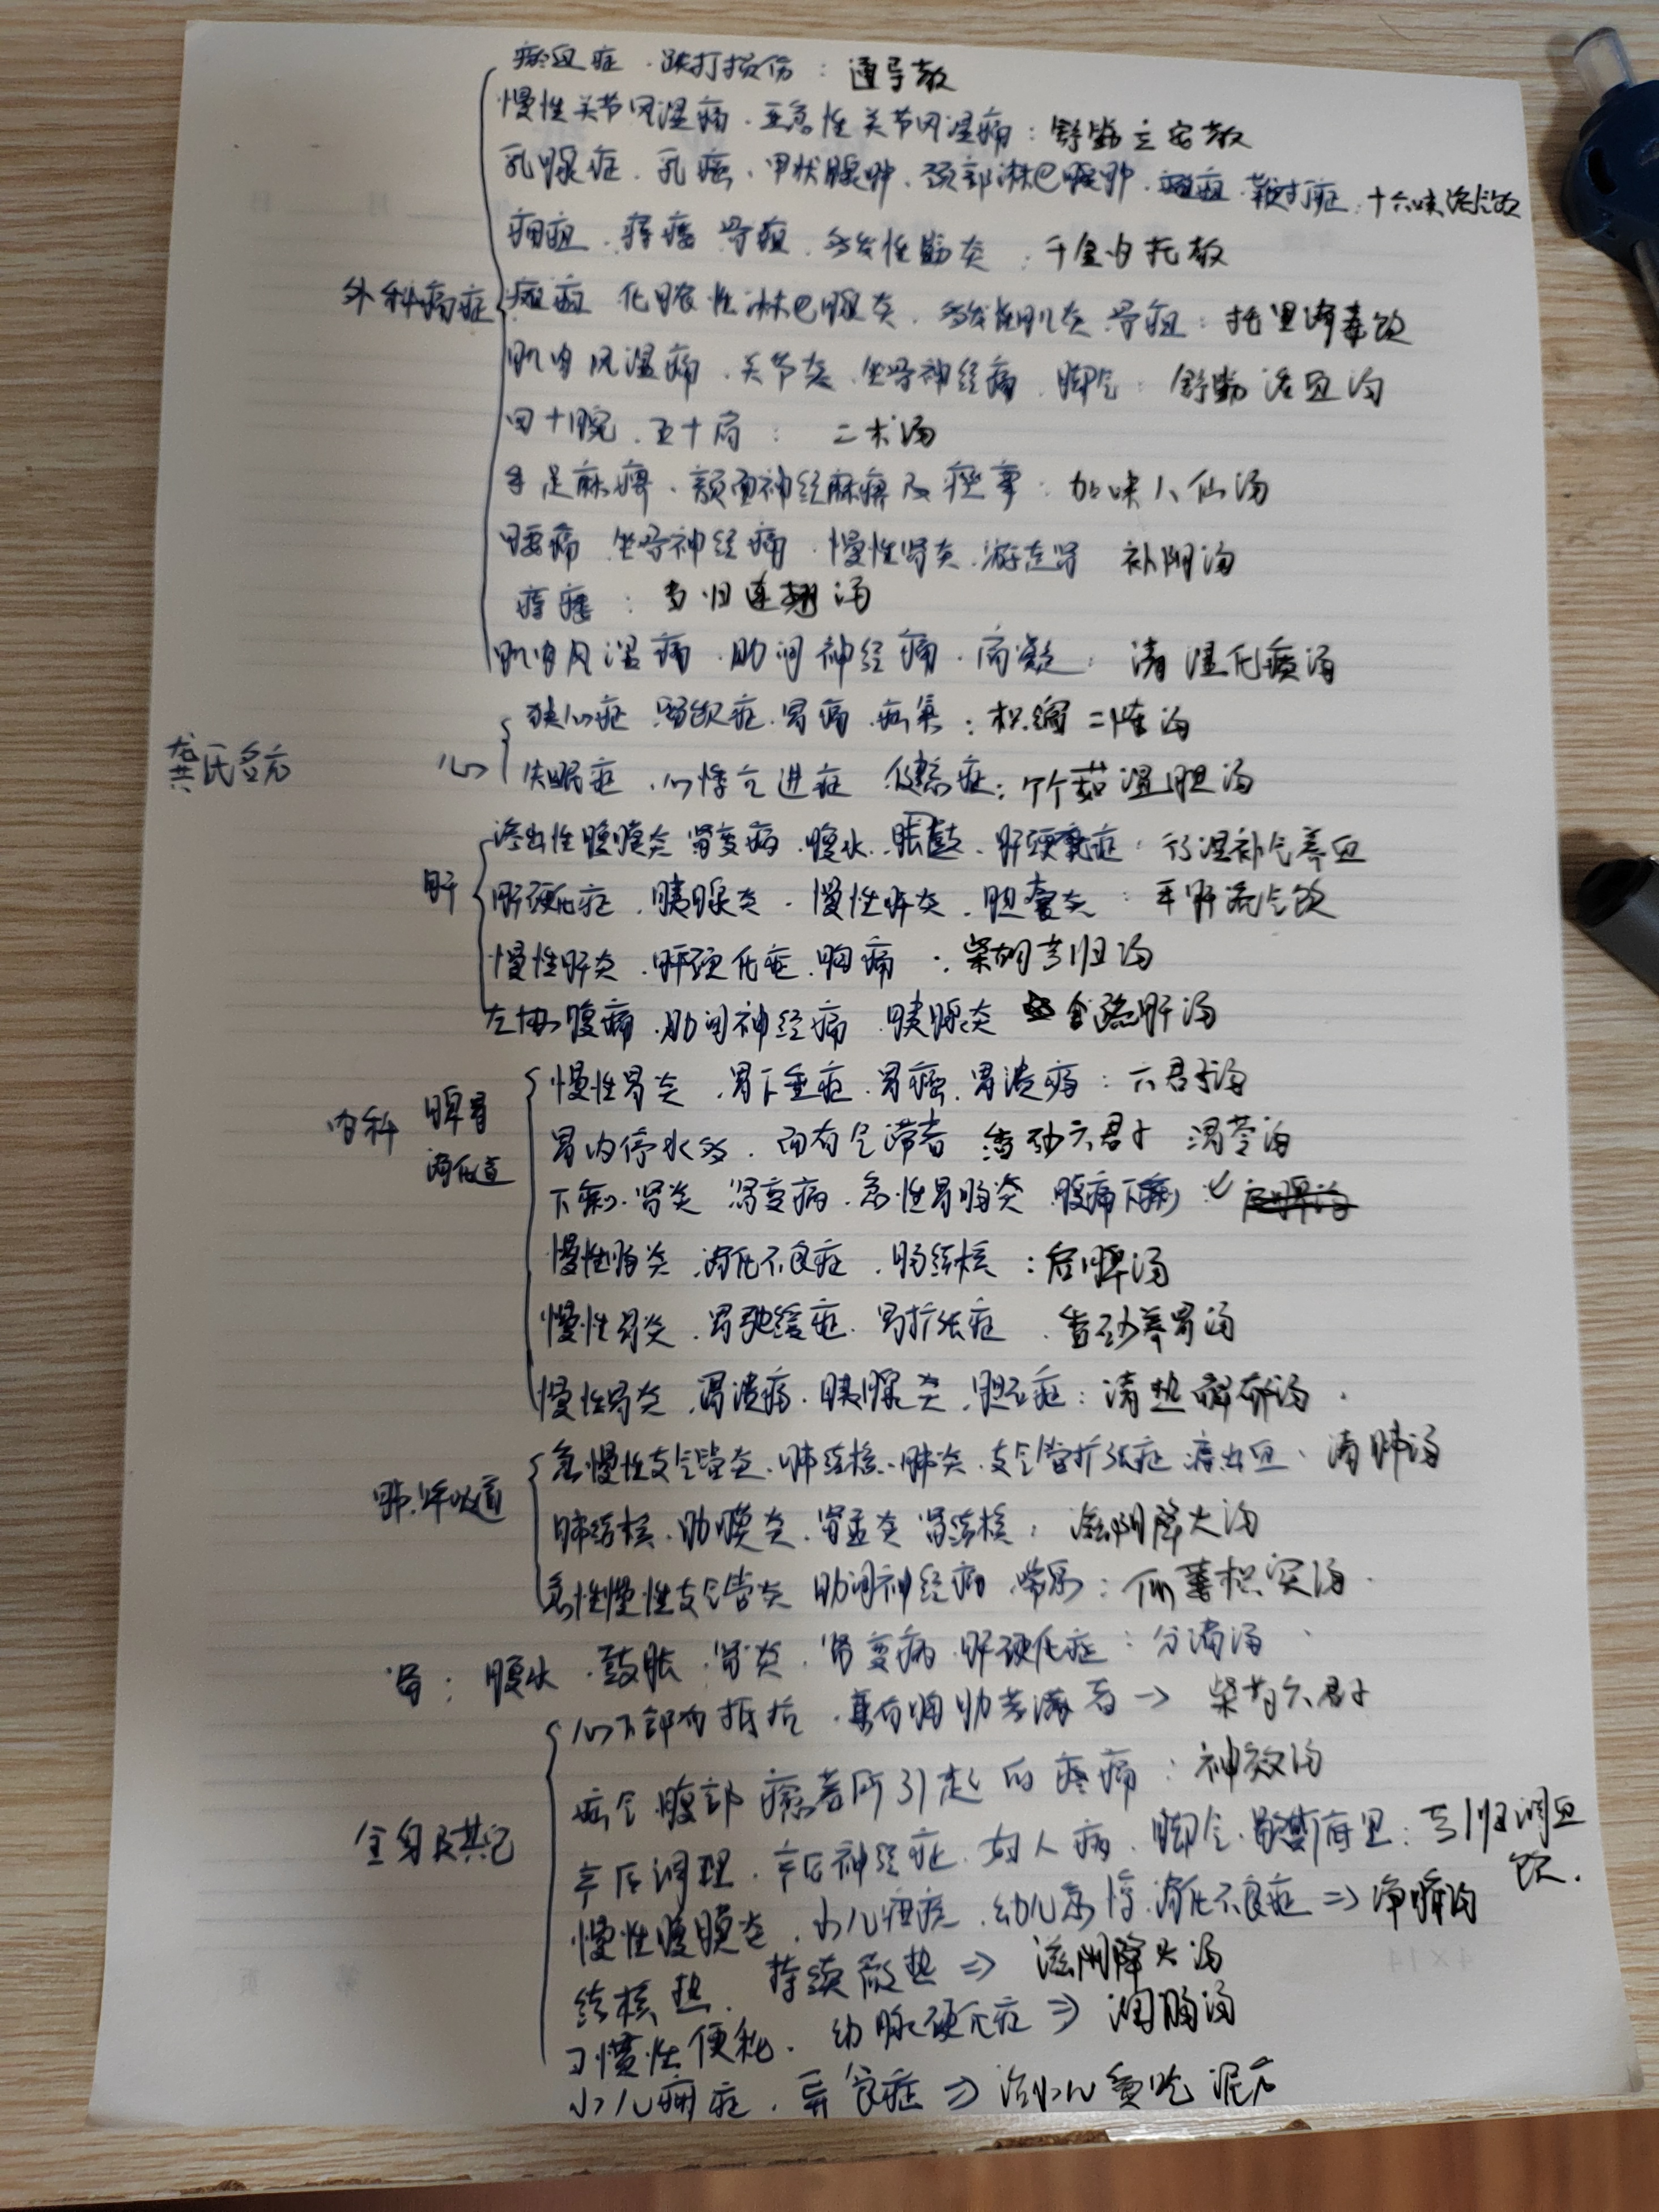 瘀血症．跌打损伤：通导散
慢性关节风湿病．亚急性关节风湿病：舒筋立安散
乳腺症．乳癌、甲状腺肿、颈部淋巴腺肿．十六味流气饮
痈疽．痔瘘 骨疽．多发性筋炎：千金内托散
外科病症
化脓性淋巴腺炎．多发性肌炎 骨疽：托里消毒饮
肌肉风湿病．关节炎．坐骨神经痛．脚气：舒筋活血汤
四十腕．五十肩：二术汤
手足麻痹．颜面神经麻痹及痉挛：加味八仙汤
腰痛 坐骨神经痛．慢性肾炎．游走肾 补阴汤
痔瘘：当归连翘汤
肌肉风湿病．肋间神经痛．肩凝：清湿化痰汤
龚氏名方
心
狭心症 胃痛：枳缩二陈汤
失眠症．心悸亢进症：竹茹温胆汤
肝
渗出性腹膜炎 肾变病．腹水．胀鼓．行湿补气养血
肝硬化症．胰腺炎．慢性肝炎．胆囊炎：平肝流气饮
慢性肝炎．肝硬化症．胸痛：柴胡芎归汤
左协腹痛．肋间神经痛 胰腺炎 疏肝汤
内科 脾胃
消化道
慢性胃炎．胃下垂症．胃癌．胃溃疡：六君子汤
胃内停水多．而有气滞者 香砂六君子
下痢．肾炎 肾变病．急性胃肠炎 腹痛下痢
慢性肠炎．消化不良症．肠结核：启脾汤
慢性胃炎．胃弛缓症．胃扩张症．香砂养胃汤
慢性胃炎．胃溃疡．胰腺炎．胆石症：清热解郁汤．
肺．呼吸道
急慢性支气管炎．肺结核．肺炎．支气管扩张症 清肺汤
肺结核．肋膜炎．肾盂炎 肾结核：滋阴降火汤
急性慢性支气管炎 肋间神经痛 哮喘：瓜蒌枳实汤．
肾：腹水．鼓胀．肾炎．肾变病 肝硬化症：分消汤
全身及其它
心下部有抵抗．兼有胸肋苦满者→ 柴芍六君子
疝气 腹部 所引起的疼痛：神效汤
产后调理．产后神经症．妇人病．脚气．当归调血
饮．
慢性腹膜炎．小儿疳疾．消化不良症⇒净腑汤
结核热．持续微热⇒ 滋阴降火汤
习惯性便秘．动脉硬化症⇒ 润肠汤
小儿病症．异食症⇒治小儿贪吃泥方